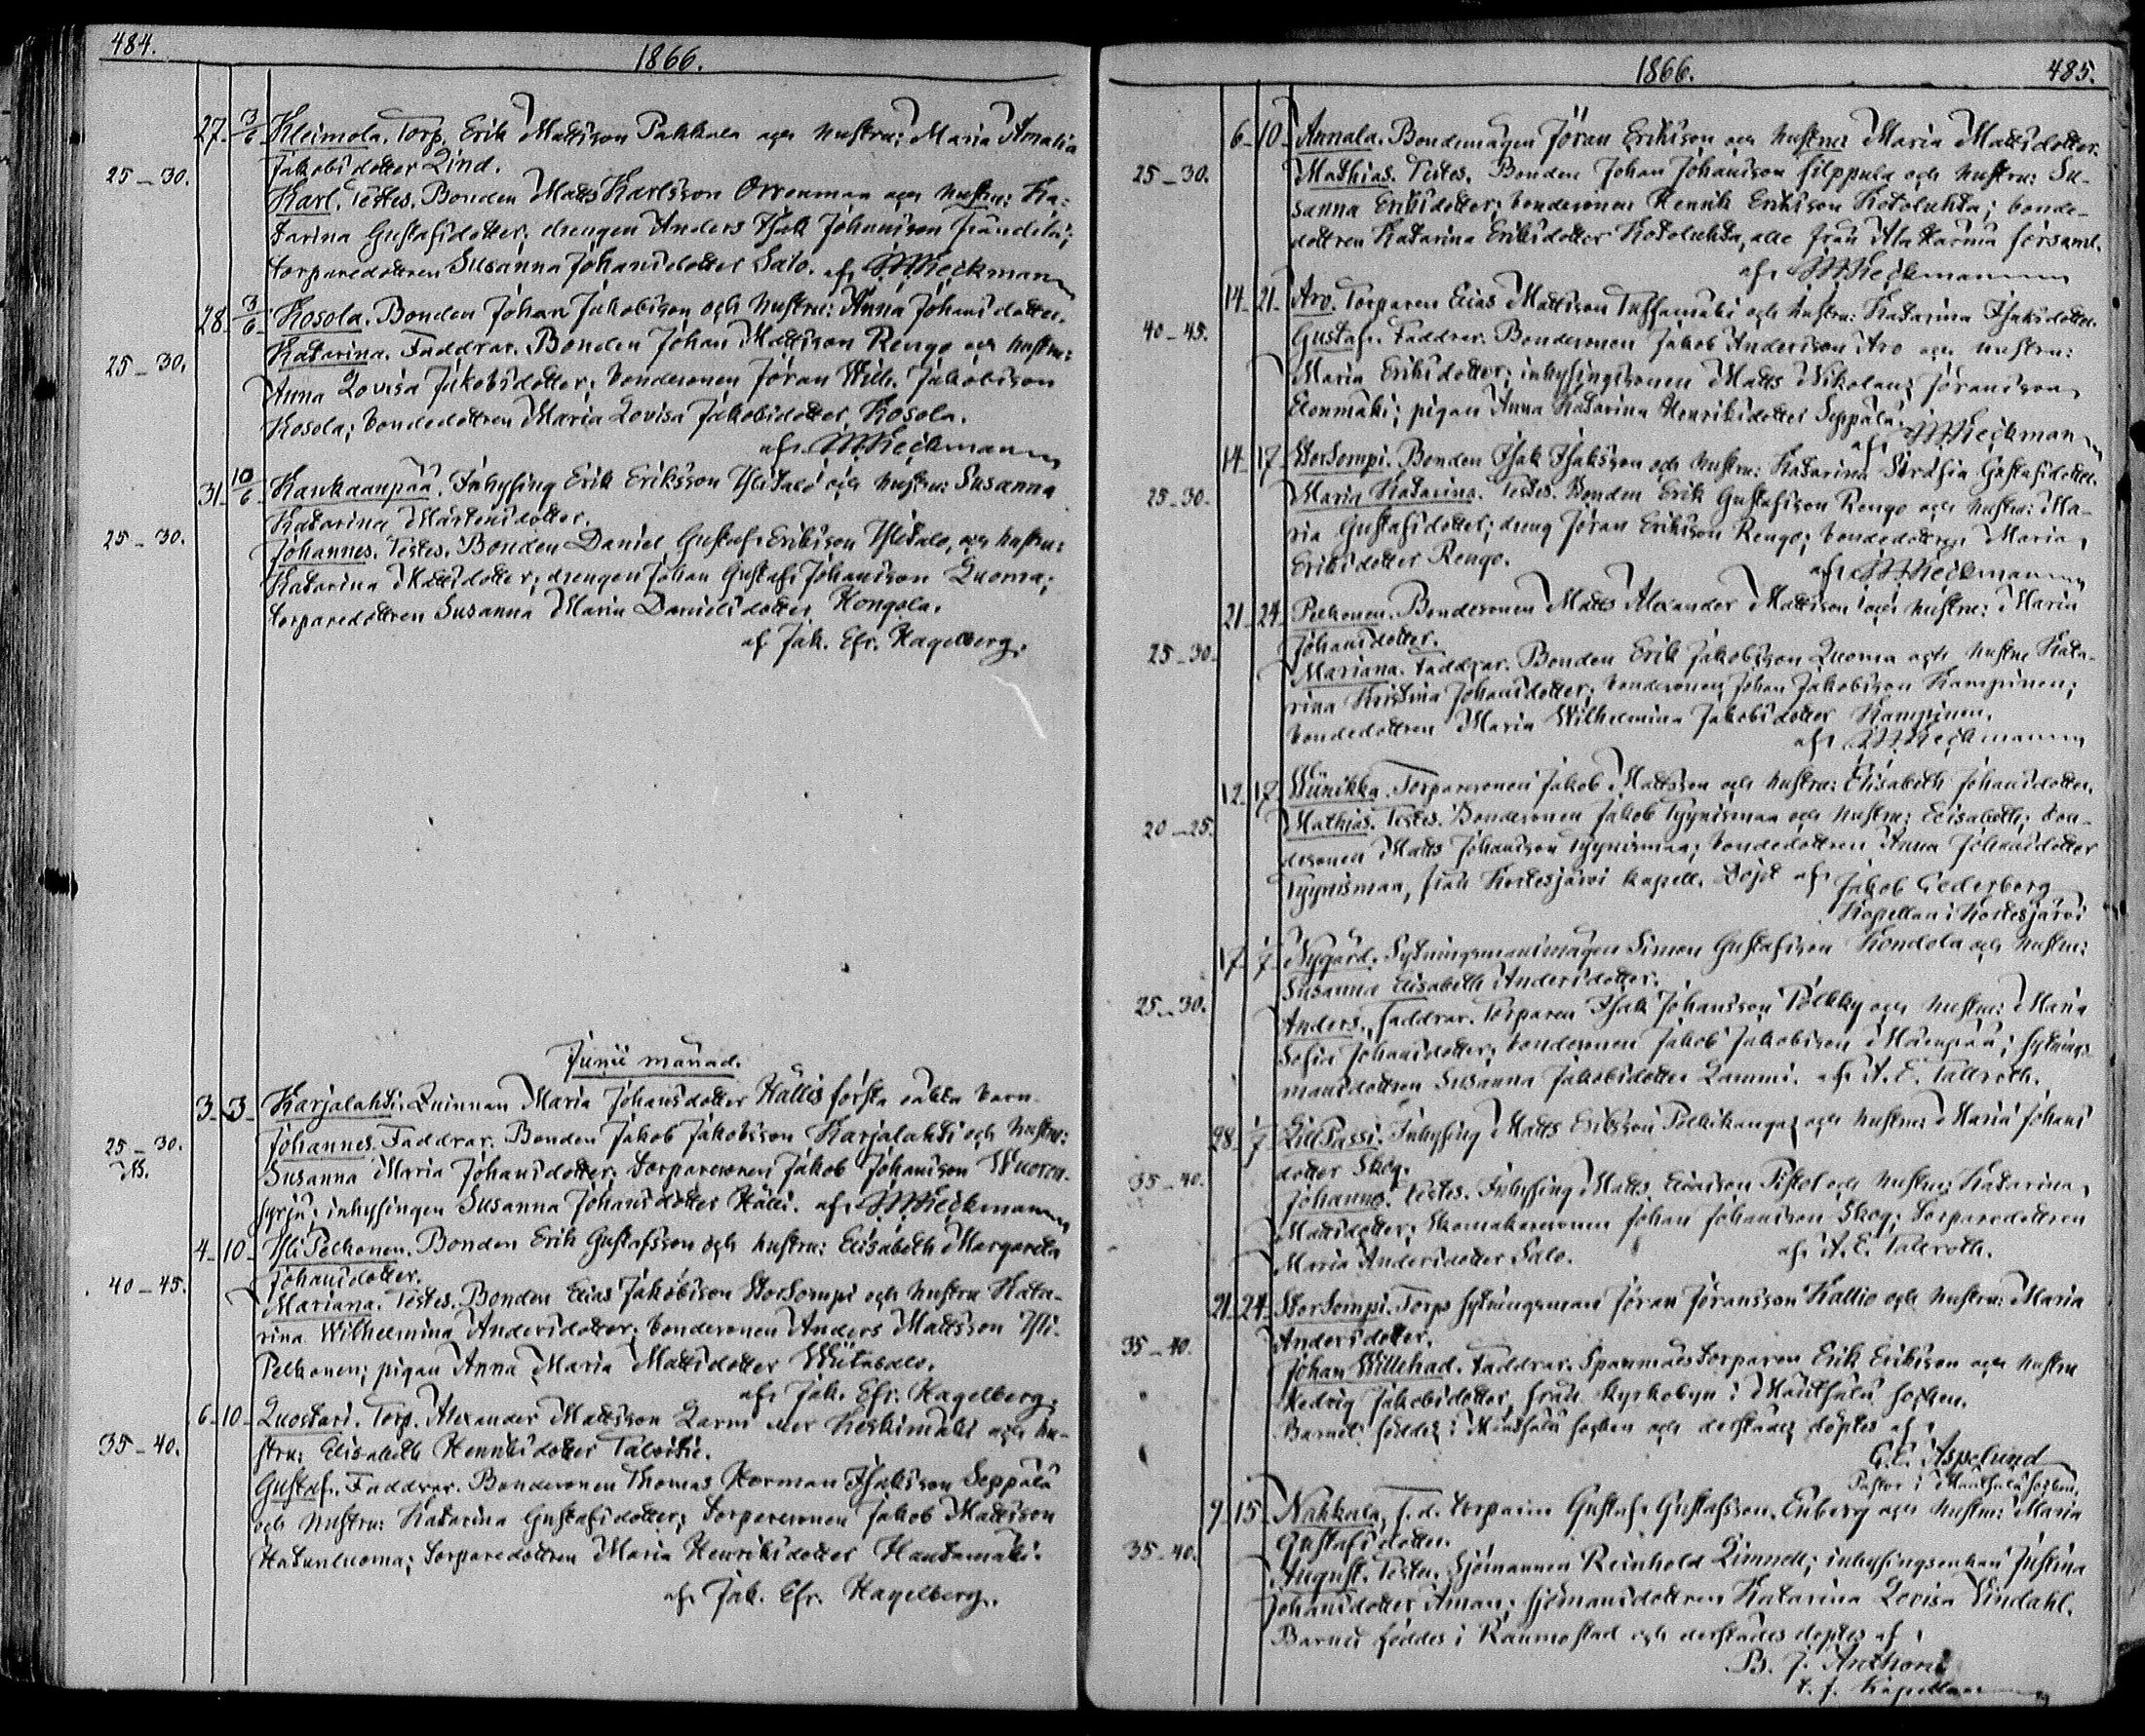 484.
1866.
27. 3/6 Kleimola. Torp. Erik Mattsson Pakkala och hustru: Maria Amalia
Jakobsdotter Lind.
25–30.
Karl. Testes. Bonden Matts Karlsson Orrenmaa och hustru: Ka-
tarina Gustafsdotter; drengen Anders Isak Johansson
torparedottren Susanna Johansdotter Salo. af M. Heikman
28. 3/6 Kosola. Bonden Johan Jakobsson och hustru: Anna Johansdotter.
25–30.
Katarina. Faddrar. Bonden Johan Mattsson Rengo och hustru:
Anna Lovisa Jakobsdotter; bondesonen Jöran Wilh. Jakobsson
Kosola; bondedottren Maria Lovisa Jakobsdotter Kosola.
af M. Heikman
31. 10/6 Kankaanpää. Inhysing Erik Eriksson Ylitalo och hustru: Susanna
Katarina Mårtensdotter.
25–30.
Johannes. Testes. Bonden Daniel Gustaf Eriksson Ylitalo, och hustru:
Katarina Mattsdotter; drengen Johan Gustaf Johansson Luoma;
torparedottren Susanna Maria Danielsdotter Hongola.
af Jak. Efr. Hagelberg.
Junii månad.
3. 3. Karjalahti. Qvinnan Maria Johansdotter Hallis första oäkta barn
25–30.
Johannes. Faddrar. Bonden Jakob Jakobsson Karjalahti och hustru:
Susanna Maria Johansdotter; torparesonen Jakob Johansson Wuoren-
syrjä; inhysingen Susanna Johansdotter Halli. af M. Heikman
4. 10. Yli Pelkonen. Bonden Erik Gustafsson och hustru: Elisabeth Margareta
Johansdotter.
40–45.
Mariana. Testes. Bonden Elias Jakobsson StorSompi och hustru Kata-
rina Wilhelmina Andersdotter; bondesonen Anders Mattsson Yli-
Pelkonen; pigan Anna Maria Mattsdotter Wiitasalo.
af Jak. Efr. Hagelberg.
6. 10. Luostari. Torp. Alexander Mattsson Larvi eller Keskimäki och hu-
stru: Elisabeth Henriksdotter Talvitie.
35–40.
Gustaf. Faddrar. Bondesonen Thomas Herman Isaksson Seppälä
och hustru: Katarina Gustafsdotter; torparesonen Jakob Mattsson
Hatunluoma; torparedottren Maria Henriksdotter Hautamäki.
af Jak. Efr. Hagelberg.
1866.
485.
6. 10. Annala. Bondemågen Jöran Eriksson och hustru: Maria Mattsdotter.
25–30.
Mathias. Testes. Bonden Johan Johansson Filppula och hustru: Su-
sanna Eriksdotter; bondesonen Henrik Eriksson Kotoluhta; bonde-
dottren Katarina Eriksdotter Kotoluhta, alla från Ala Härmä församl.
af M. Heikman
14. 21. Aro. Torparen Elias Mattsson Tassamäki och hustru: Katarina Isaksdotter.
40–45.
Gustaf. Faddrar. Bondesonen Jakob Andersson Aro och hustru:
Maria Eriksdotter; inhysingssonen Matts Nikolaus Jöransson
Elonmäki; pigan Anna Katarina Henriksdotter Seppälä.
af M. Heikman
14. 17. StorSompi. Bonden Isak Isaksson och hustru: Katarina Serafia Gustafsdotter.
25–30.
Maria Katarina. Testes. Bonden Erik Gustafsson Rengo och hustru: Ma-
ria Gustafsdotter; dreng Jöran Eriksson Rengo; bondedottren Maria
Eriksdotter Rengo.
af M. Heikman
21. 24. Pelkonen. Bondesonen Matts Alexander Mattsson och hustru: Maria
Johansdotter.
25–30.
Mariana. Faddrar. Bonden Erik Jakobsson Luoma och hustru Kata-
rina Kristina Johansdotter; bondesonen Johan Jakobsson Kampinen;
bondedottren Maria Wilhelmina Jakobsdotter Kampinen.
af M. Heikman
12. 17. Wiinikka. Torparesonen Jakob Mattsson och hustru: Elisabeth Johansdotter.
20–25.
Mathias. Testes. Bondesonen Jakob Tyynismaa och hustru: Elisabeth; bon-
desonen Matts Johansson Tyynismaa; bondedottren Anna Johansdotter
Tyynismaa, från Kortesjärvi kapell. Döpt af Jakob Cederberg
Kapellan i Kortesjärvi
17. 1/7 Nygård. Sytningsmansmågen Simon Gustafsson Kondola och hustru:
Susanna Elisabeth Andersdotter.
25–30.
Anders. Faddrar. Torparen Isak Johansson Pölkky och hustru: Maria
Sofia Johansdotter; bondesonen Jakob Jakobsson Mäenpää; sytnings-
mansdottren Susanna Jakobsdotter Lammi. af A. E. Tallroth.
28. 1/7 LillPassi. Inhysing Matts Eriksson Pelkikangas och hustru: Maria Johans
dotter Skog.
35–40.
Johannes. Testes. Inhysing Matts Eliasson Pistol och hustru: Katarina
Mattsdotter; skomakaresonen Johan Johansson Skog; torparedottren
Maria Andersdotter Salo. af A. E. Tallroth.
21. 24. StorSompi. Torp. sytningsman Jöran Jöransson Kallio och hustru: Maria
Andersdotter.
35–40.
Johan Willehad. Faddrar. Spannmålstorparen Erik Eriksson och hustru
Hedvig Jakobsdotter, från kyrkobyn i Mäntsälä socken.
Barnet föddes i Mäntsälä socken och derstädes döptes af
G. E. Aspelund
Pastor i Mäntsälä socken.
9. 15. Nakkala, f. d. torparen Gustaf Gustafsson Enberg och hustru: Maria
Gustafsdotter.
35–40.
August. Testes. Sjömannen Reinhold Linnell; inhysingsenkan Justina
Johansdotter Åman; sjömansdottren Katarina Lovisa Vindahl.
Barnet föddes i Raumo stad och derstädes döptes af
B. J. Anthoni
t. f. Kapellan